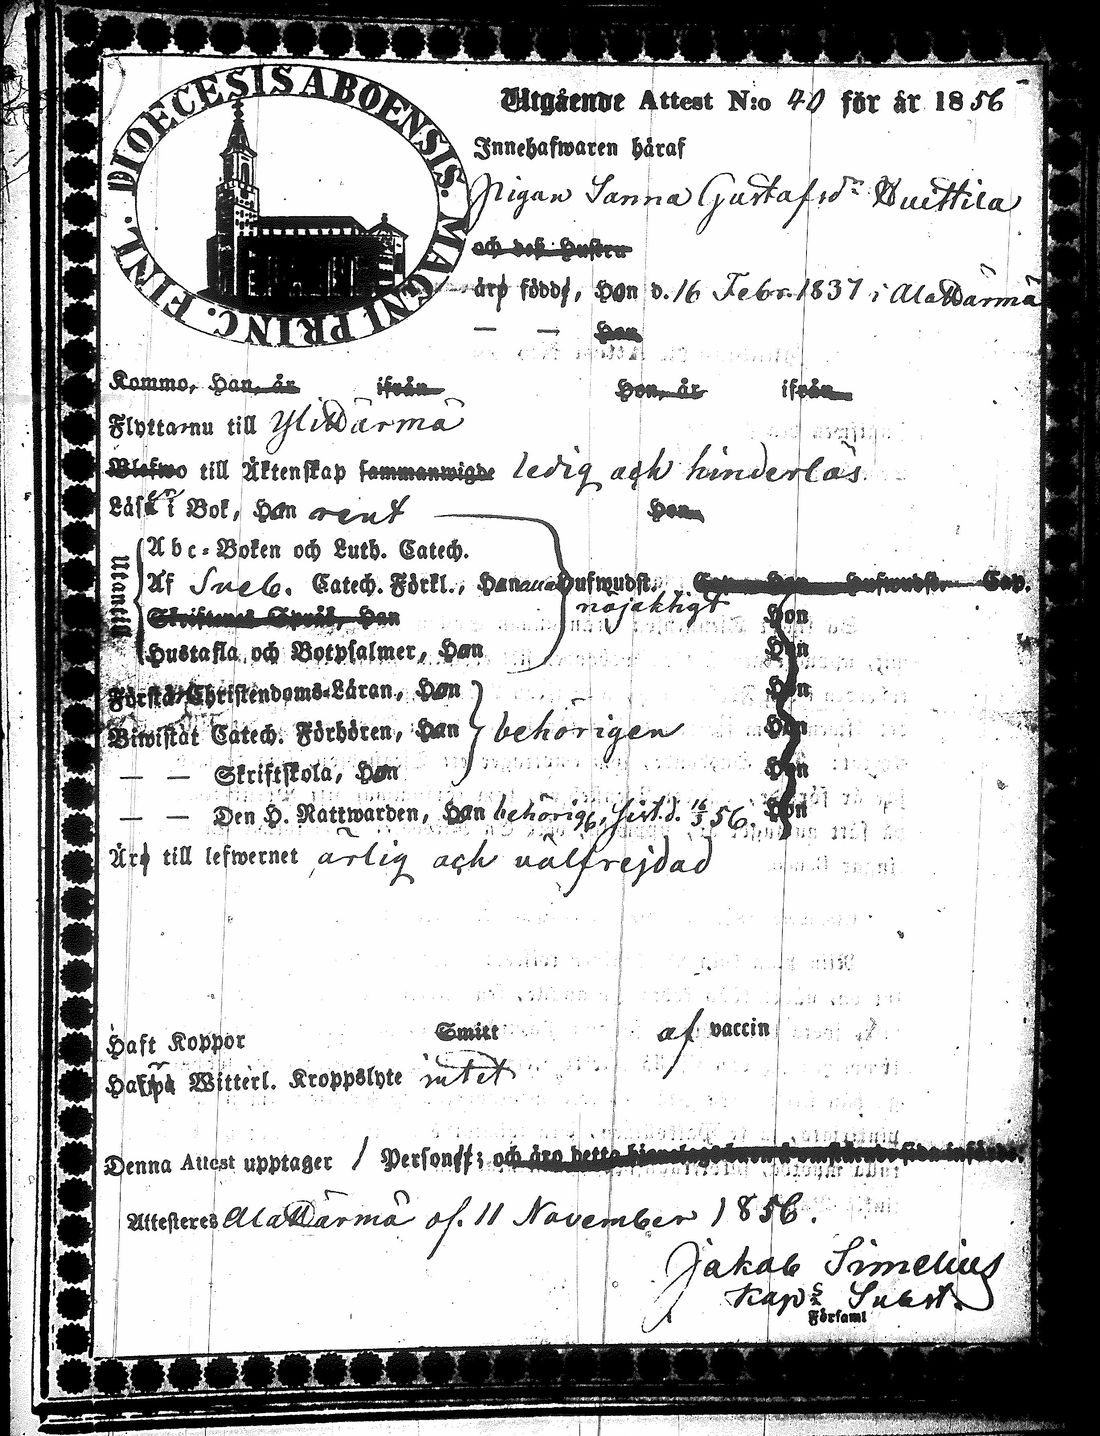 DIOECESIS ABOENSIS. MAGNI PRINC. FINL.
Utgående Attest N:o 40 för år 1856
Innehafwaren häraf
Pigan Sanna Gustafsdr Huittila
och dess Hustru
äro födde, Hon d. 16 Febr. 1837 i AlaHärmä
— — Hon
Kommo, Han, är ifrån Hon, är ifrån
Flyttarnu till YliHärmä
Blefwo till Äktenskap sammanwigde ledig och hinderlös
Läser i Bok, Hon rent Hon
Utantill
Abc-Boken och Luth. Catech.
Af Sveb. Catech. Förkl., Hon alla Hufwudst. Cap. Hon Hufwudst. Cap.
nöjaktigt
Skriftenes Språk, Han Hon
Hustafla och Botpsalmer, Hon Hon
Förstår Christendoms-Läran, Hon Hon
Biwistat Catech. Förhören, Hon behörigen Hon
— — Skriftskola, Hon Hon
— — Den H. Nattwarden, Hon behörig, sist d. 16/3 56. Hon
Äro till lefwernet ärlig och välfrejdad
Haft Koppor Smitt af vaccin
Witterl. Kroppslyte intet
Denna Attest upptager 1 Person; och äro detta hjonelags barn å omstående sida införde.
Attesteres AlaHärmä d. 11 November 1856.
Jakob Simelius
Kap: Subst.
Församl